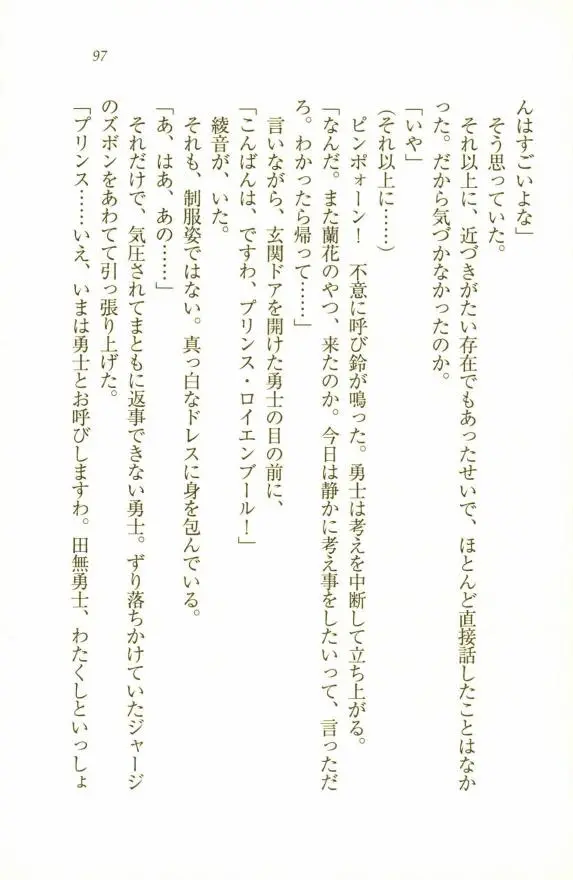 97
んはすごいよな」
そう思っていた。
それ以上に、近づきがたい存在でもあったせいで、ほとんど直接話したことはなか
った。だから気づかなかったのか。
「いや」
(それ以上に……)
ピンポォーン！　不意に呼び鈴が鳴った。勇士は考えを中断して立ち上がる。
「なんだ。また蘭花のやつ、来たのか。今日は静かに考え事をしたいって、言っただ
ろ。わかったら帰って……」
言いながら、玄関ドアを開けた勇士の目の前に、
「こんばんは、ですわ、プリンス・ロイエンブール！」
綾音が、いた。
それも、制服姿ではない。真っ白なドレスに身を包んでいる。
「あ、はあ、あの……」
それだけで、気圧されてまともに返事できない勇士。ずり落ちかけていたジャージ
のズボンをあわてて引っ張り上げた。
「プリンス……いえ、いまは勇士とお呼びしますわ。田無勇士、わたくしといっしょ